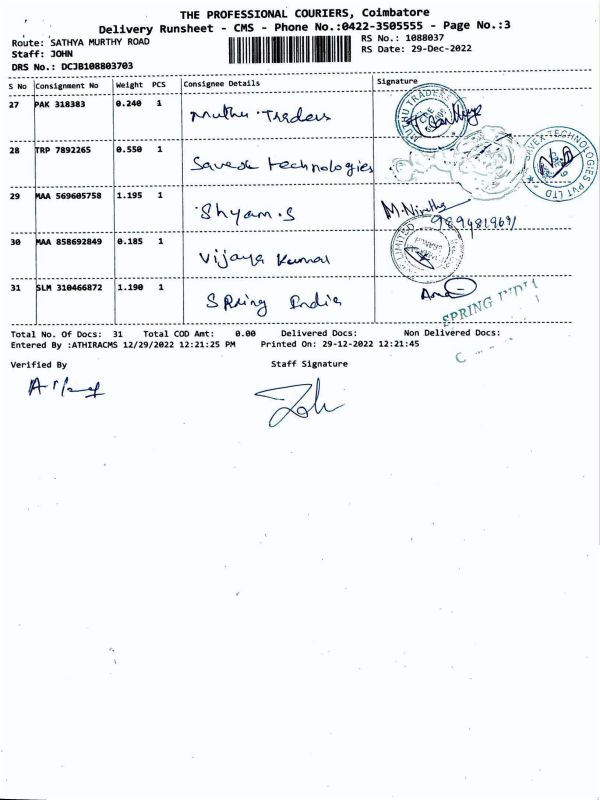 THE PROFESSIONAL COURIERS, Coimbatore
Delivery Runsheet - CMS - Phone No.:0422-3505555 - Page No.:3
Route: SATHYA MURTHY ROAD
RS No.: 1088037
Staff: JOHN
RS Date: 29-Dec-2022
DRS No.: DCJB108803703
S No Consignment No Weight PCS Consignee Details Signature
27 PAK 318383 0.240 1 Muthu Traders
MUTHU TRADERS
28 TRP 7892265 0.550 1 Savex technologies
SAVEX TECHNOLOGIES PVT LTD
29 MAA 569605758 1.195 1 Shyam.S M.Nivetha
9894819691
30 MAA 858692849 0.185 1 Vijaya Kumar
LIMITED
31 SLM 310466872 1.190 1 Spring India
SPRING INDIA
Total No. Of Docs: 31 Total COD Amt: 0.00 Delivered Docs: Non Delivered Docs:
Entered By :ATHIRACMS 12/29/2022 12:21:25 PM Printed On: 29-12-2022 12:21:45
Verified By Staff Signature